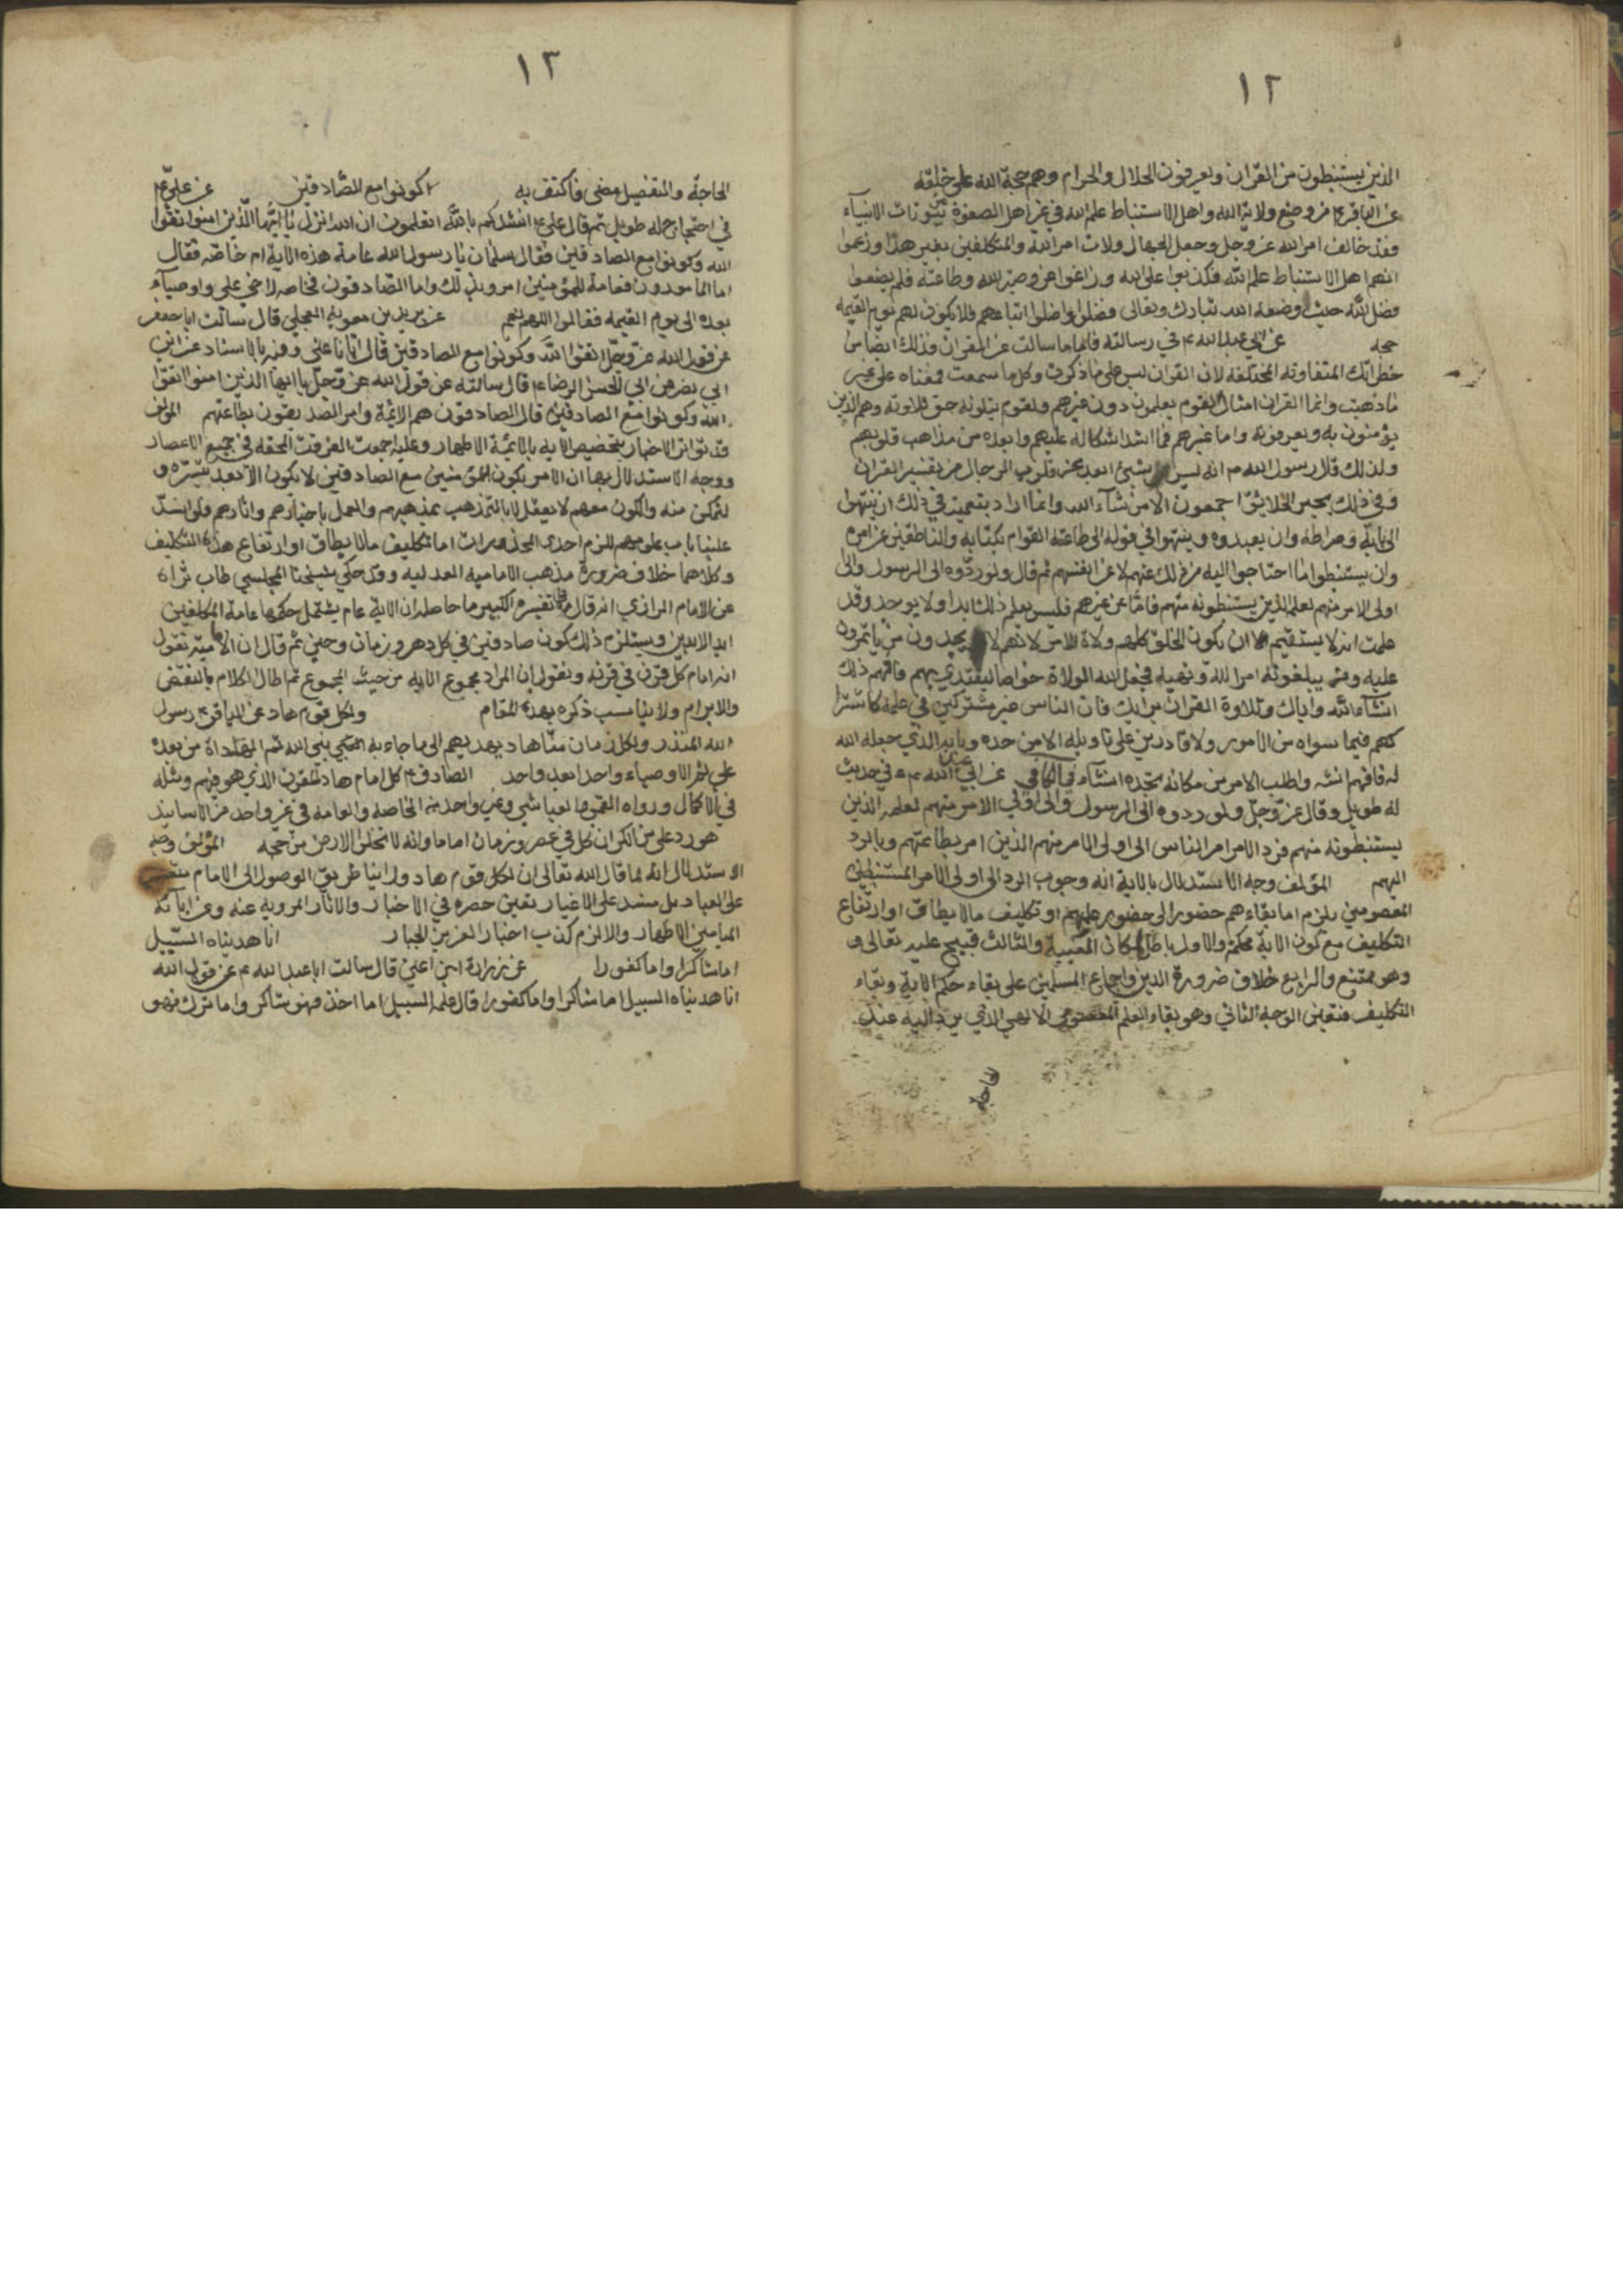 ١٢
الذين يستنبطون من القران ويعرفون الحلال والحرام وهم حجة الله على خلقه
عن الباقر ع من وضع ولاية الله واهل الاستنباط علم الله في غير اهل الصفوة من بيوتات الانبياء
فقد خالف امر الله عز وجل وجعل الجهال ولات امر الله والمتكلفين بغير هدا وزعموا
انهم اهل الاستنباط علم الله فكذبوا على الله وزاغوا عن وصية الله وطاعته فلم يضعوا
فضل الله حيث وضعه الله تبارك وتعالى فضلوا واضلوا اتباعهم فلا يكون لهم يوم القيمه
حجه عن ابي عبد الله ع في رسالته فاما ما سالت عن القران فذلك ايضا من
خطراتك المتفاوته المختلفه لان القران ليس على ما ذكرت وكل ما سمعت فمعناه على غير
ما ذهبت وانما القران امثال لقوم يعلمون دون غيرهم ولقوم يتلونه حق تلاوته وهم الذين
يؤمنون به ويعرفونه واما غيرهم فما اشد اشكاله عليهم وابعده من مذاهب قلوبهم
ولذلك قال رسول الله ص انه ليس شيئ ابعد من قلوب الرجال من تفسير القران
وفي ذلك تحير الخلايق اجمعون الا من شآء الله وانما اراد بتعميته في ذلك ان ينتهوا
الى بابه وصراطه وان يعبدوه وينتهوا في قوله الى طاعة القوام بكتابه والناطقين عن امره
وان يستنبطوا ما احتاجوا اليه من ذلك عنهم لا عن انفسهم ثم قال ولو ردوه الى الرسول والى
اولى الامر منهم لعلمه الذين يستنبطونه منهم فاما عن غيرهم فليس يعلم ذلك ابدا ولا يوجد وقد
علمت انه لا يستقيم ان يكون الخلق كلهم ولاة الامر لانهم لا يجدون من ياتمرون
عليه ومن يبلغونه امر الله ونهيه فجعل الله الولاة خواصا ليقتدي بهم فافهم ذلك
انشآء الله واياك وتلاوة القران برايك فان الناس غير مشتركين في علمه كاشترا
كهم فيما سواه من الامور ولا قادرين على تاويله الا من حده وبابه الذي جعله الله
له فافهم انشه واطلب الامر من مكانه تجده انشآء في الكافي عن ابي عبد الله ع في حديث
له طويل وقال عز وجل ولو ردوه الى الرسول والى اولي الامر منهم لعلمه الذين
يستنبطونه منهم فرد الامر امر الناس الى اولى الامر منهم الذين امر بطاعتهم وبالرد
اليهم المؤلف وجه الاستدلال بالاية انه وجوب الرد الى اولى الامر المستنبطين
المعصومين يلزم اما بقاءهم حضورا الى حضور علمهم او تكليف مالا يطاق او ارتفاع
التكليف مع كون الاية محكمة والاول باطل لمكان الغيبية والثالث قبيح عليه تعالى و
وهو ممتنع والرابع خلاف ضرورة الدين واجماع المسلمين على بقاء حكم الاية وبقاء
التكليف فتعين الوجه الثاني وهو بقاء العلم الالهي الذي يرد اليه عند
الحاجة
١٣
الحاجة والتفصيل مضى فاكتف به كونوا مع الصادقين عن علي ع
في احتجاج له طويل ثم قال علي ع انشدكم بالله اتعلمون ان الله انزل يا ايها الذين امنوا اتقوا
الله وكونوا مع الصادقين فقال سلمان يا رسول الله عامة هذه الاية ام خاصه فقال
اما المامورون فعامة للمؤمنين امروا بذلك واما الصادقون فخاصه لاخي علي واوصيآء
بعده الى يوم القيمه فقالوا اللهم نعم عن بريد بن معوية العجلي قال سالت ابا جعفر
عن قول الله عز وجل اتقوا الله وكونوا مع الصادقين قال ايانا عنى وفيه بالاسناد عن ابن
ابي نصر عن ابي الحسن الرضا ع قال سالته عن قول الله عز وجل يا ايها الذين امنوا اتقوا
الله وكونوا مع الصادقين قال الصادقون هم الائمة وامر الصديقون بطاعتهم المؤلف
قد تواتر الاخبار بتخصيص الايه بالائمة الاطهار وعليه اجمعت الفرقة المحقه في جميع الاعصار
ووجه الاستدلال بها ان الامر بكون المؤمنين مع الصادقين لا يكون الا بعد تيسره و
لتمكن منه والكون معهم لا يعقل الا بالتمذهب بمذهبهم والعمل باخبارهم واثارهم فلو انسد
علينا باب علومهم للزم احدى المحذورات اما تكليف مالا يطاق او ارتفاع هذا التكليف
وكلاهما خلاف ضرورة مذهب الاماميه العدليه وقد حكي شيخنا المجلسي طاب ثراه
عن الامام الرازي انه قال في تفسيره الكبير ما حاصله ان الاية عام يشتمل حكمها عامة المكلفين
ابد الابدين ويستلزم ذلك كون صادقين في كل دهر وزمان وحين ثم قال ان الاماميه تقول
انه امام كل قرن في قرنه ونقول ان المراد مجموع الايه من حيث المجموع ثم اطال الكلام بالنقض
والابرام ولا يناسب ذكره بهذه المقام ولكل قوم هاد عن الباقر ع رسول
الله المنذر ولكل زمان منا هاد يهديهم الى ما جاء به النبي نبي الله ثم الهداة من بعده
علي ثم الاوصياء واحدا بعد واحد الصادق ع كل امام هاد للقرن الذي هو فيهم ومثله
في الاكمال ورواه القمي والعياشي وغير واحد من الخاصه والعامه في غير واحد من الاسانيد
هو رد على من انكر ان كل في عصر وزمان اماما وانه لا تخلوا الارض من حجه المؤلف وجه
الاستدلال انه لما قال الله تعالى ان لكل قوم هاد وراينا طريق الوصول الى الامام
على العباد بل منسد على الاغيار تعين حصره في الاخبار والاثار المرويه عنه وعن ابآئه
الميامين الاطهار والا لزم كذب اخبار العزيز الجبار انا هديناه السبيل
اما شاكرا واما كفورا عن زرارة ابن اعين قال سالت ابا عبد الله ع عن قول الله
انا هديناه السبيل اما شاكرا واما كفورا قال علمه السبيل اما اخذ فهو شاكر واما ترك فهو